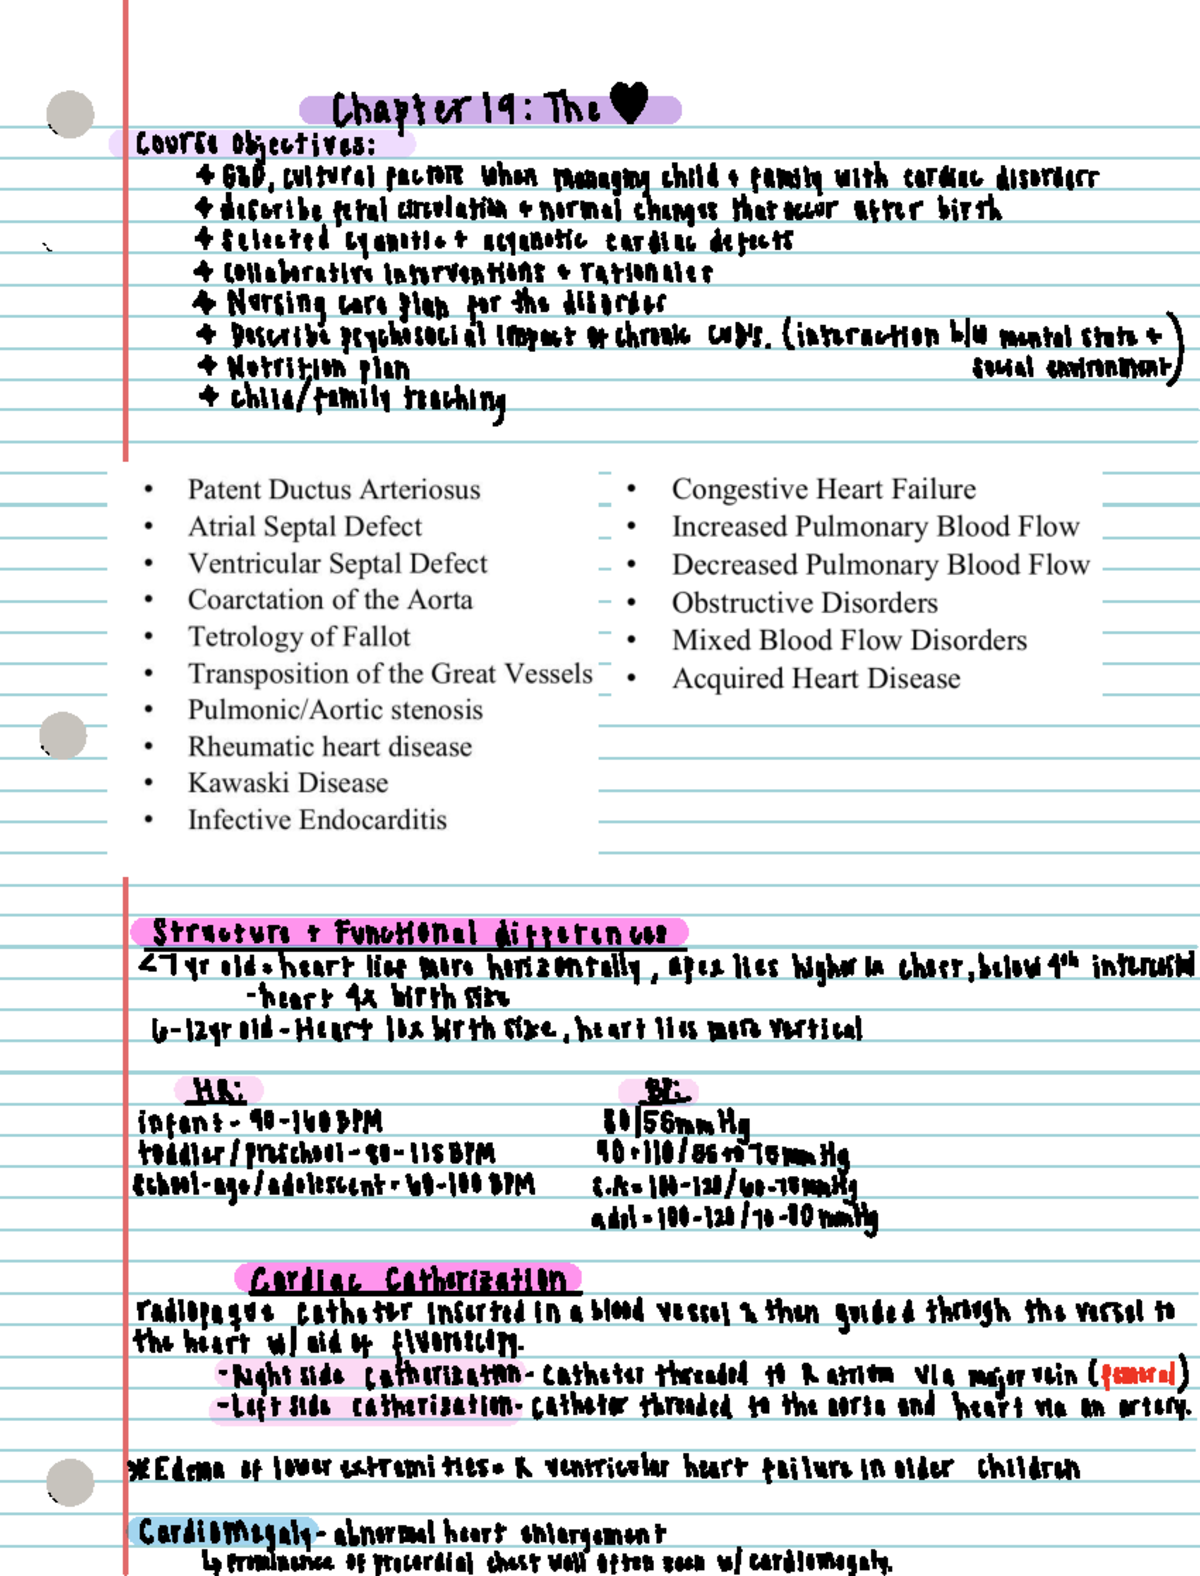 Chapter 19: The ♥
Course Objectives:
+ G&D, cultural factors when managing child + family with cardiac disorders
+ describe fetal circulation + normal changes that occur after birth
+ Selected cyanotic + acyanotic cardiac defects
+ Collaborative interventions + rationales
+ Nursing care plan for the disorder
+ Describe psychosocial impact of chronic (interaction b/w mental state +
social environment)
+ Nutrition plan
+ Child/family teaching
• Patent Ductus Arteriosus
• Atrial Septal Defect
• Ventricular Septal Defect
• Coarctation of the Aorta
• Tetrology of Fallot
• Transposition of the Great Vessels
• Pulmonic/Aortic stenosis
• Rheumatic heart disease
• Kawaski Disease
• Infective Endocarditis
• Congestive Heart Failure
• Increased Pulmonary Blood Flow
• Decreased Pulmonary Blood Flow
• Obstructive Disorders
• Mixed Blood Flow Disorders
• Acquired Heart Disease
Structure + Functional differences
<7yr old = heart lies more horizontally, apex lies higher in chest, below 4th intercostal
-heart 4x birth size
6-12yr old - Heart 10x birth size, heart lies more vertical
HR:
infant - 90-160 BPM
toddler/preschool - 80-115 BPM
school-age/adolescent - 60-100 BPM
BP:
80|56mmHg
90-110/56 to 75mmHg
S.A = 100-120/60-75mmHg
adol = 100-120/70-80mmHg
Cardiac Catherization
radiopaque catheter inserted in a blood vessel & then guided through the vessel to
the heart w/ aid of fluoroscopy.
-Right side catherization - catheter threaded to R atrium via major vein (femoral)
-Left side catherization - catheter threaded to the aorta and heart via an artery.
*Edema of lower extremities = R ventricular heart failure in older children
Cardiomegaly - abnormal heart enlargement
↳ prominence of precordial chest wall often seen w/ cardiomegaly.